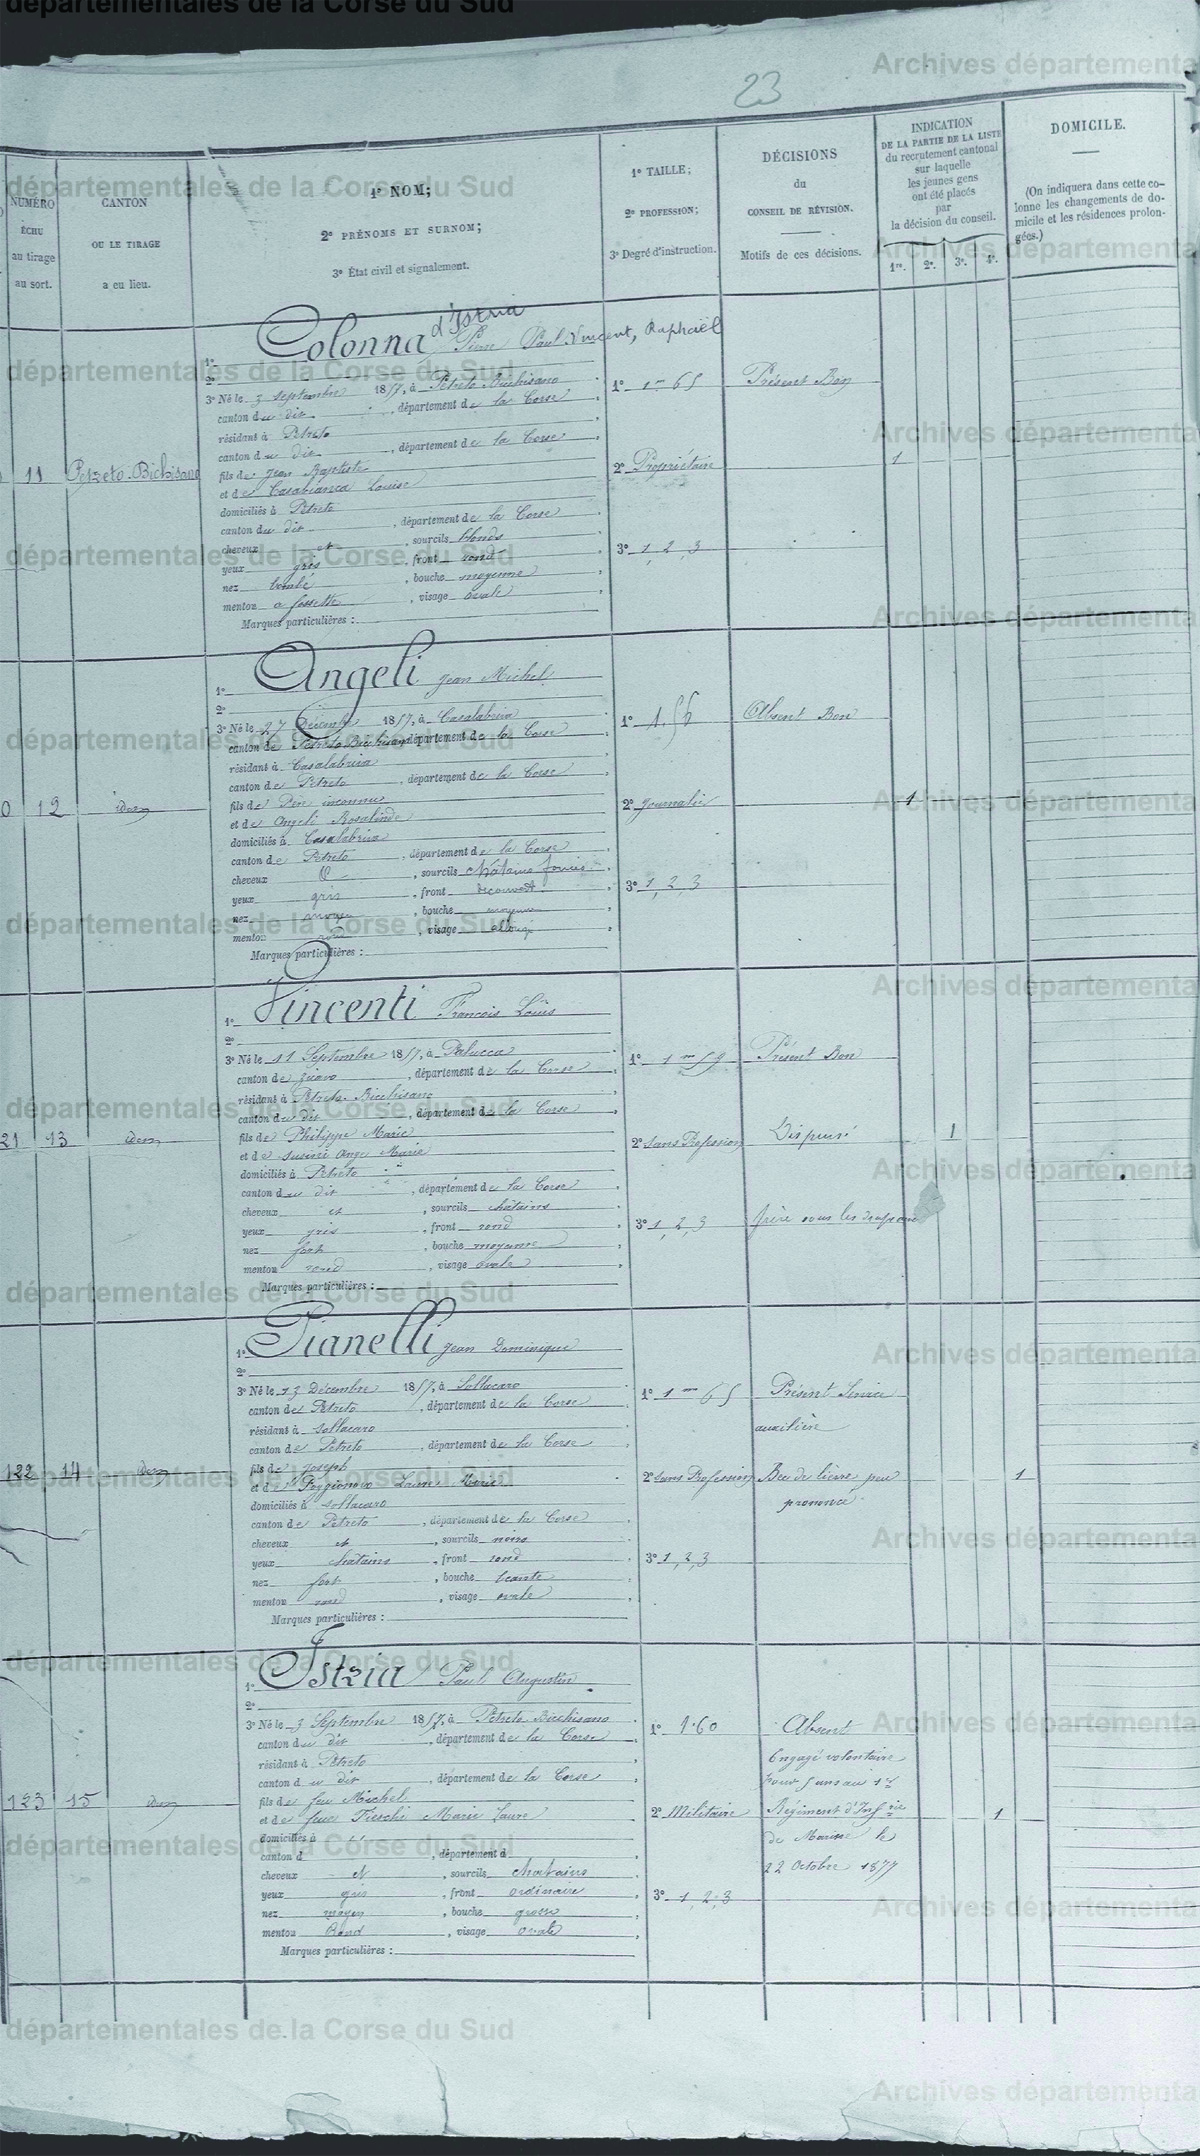 départementales de la Corse du Sud
Archives départementa
23
NUMÉRO
ÉCHU
au tirage
au sort.
CANTON
OU LE TIRAGE
a eu lieu.
1º NOM;
2º PRÉNOMS ET SURNOM;
3º État civil et signalement.
1º TAILLE;
2º PROFESSION;
3º Degré d'instruction.
DÉCISIONS
du
CONSEIL DE RÉVISION.
Motifs de ces décisions.
INDICATION
DE LA PARTIE DE LA LISTE
du recrutement cantonal
sur laquelle
les jeunes gens
ont été placés
par
la décision du conseil.
1re. 2e. 3e. 4e.
DOMICILE.
(On indiquera dans cette co-
lonne les changements de do-
micile et les résidences prolon-
gées.)
11 Petreto-Bicchisano
1º Colonna d'Istria Pierre Paul Vincent, Raphaël
2º
3º Né le 3 septembre 1857, à Petreto Bicchisano
canton du dit , département de la Corse
résidant à Petreto
canton du dit , département de la Corse
fils de Jean Baptiste
et de Casabianca Louise
domiciliés à Petreto
canton du dit , département de la Corse
cheveux et , sourcils blonds
yeux gris , front rond
nez bombé , bouche moyenne
menton a fossette , visage ovale
Marques particulières :
1º 1m 65
2º Propriétaire
3º 1, 2, 3
Présent Bon
1
0 12 idem
1º Angeli Jean Michel
2º
3º Né le 27 Décembre 1857, à Casalabriva
canton de Petreto Bicchisano département de la Corse
résidant à Casalabriva
canton de Petreto , département de la Corse
fils de Père inconnu
et de Angeli Rosalinde
domiciliés à Casalabriva
canton de Petreto , département de la Corse
cheveux et , sourcils châtains foncés
yeux gris , front découvert
nez moyen , bouche moyenne
menton rond , visage allongé
Marques particulières :
1º 1.56
2º Journalier
3º 1, 2, 3
Absent Bon
1
21 13 idem
1º Vincenti François Louis
2º
3º Né le 11 Septembre 1857, à Palneca
canton de Zicavo , département de la Corse
résidant à Petreto-Bicchisano
canton du dit , département de la Corse
fils de Philippe Marie
et de Susini Ange Marie
domiciliés à Petreto
canton du dit , département de la Corse
cheveux et , sourcils châtains
yeux gris , front rond
nez fort , bouche moyenne
menton rond , visage ovale
Marques particulières :
1º 1m 59
2º Sans Profession
3º 1, 2, 3
Présent Bon
Dispensé
frère sous les drapeaux
1
122 14 idem
1º Pianelli Jean Dominique
2º
3º Né le 13 Décembre 1857, à Sollacaro
canton de Petreto , département de la Corse
résidant à Sollacaro
canton de Petreto , département de la Corse
fils de Joseph
et de Marie
domiciliés à Sollacaro
canton de Petreto , département de la Corse
cheveux et , sourcils noirs
yeux châtains , front rond
nez fort , bouche
menton rond , visage ovale
Marques particulières :
1º 1m 65
2º Sans Profession
3º 1, 2, 3
Présent Service
auxilière
Bec de lièvre peu
prononcé
1
123 15 idem
1º Istria Paul Augustin
2º
3º Né le 3 Septembre 1857, à Petreto Bicchisano
canton du dit , département de la Corse
résidant à Petreto
canton du dit , département de la Corse
fils de feu Michel
et de feue Fieschi Marie Laure
domiciliés à
canton d , département d
cheveux et , sourcils chatains
yeux gris , front ordinaire
nez moyen , bouche grosse
menton Rond , visage ovale
Marques particulières :
1º 1.60
2º Militaire
3º 1, 2, 3
Absent
Engagé volontaire
pour 5 ans au 1er
Régiment d'Infrie
de Marine le
22 Octobre 1877
1